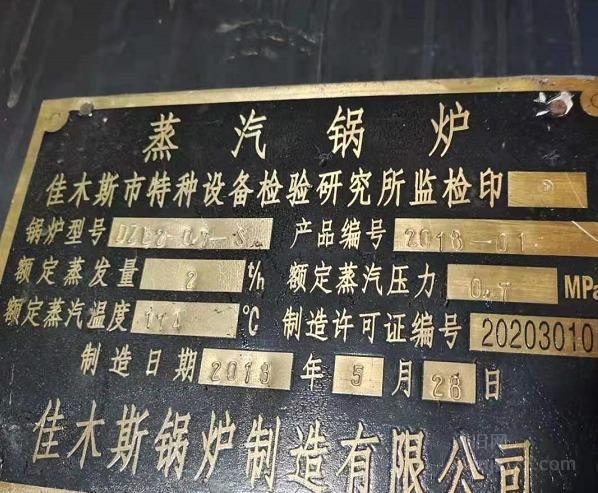 蒸汽锅炉
佳木斯市特种设备检验研究所监检印
锅炉型号 产品编号 2018-01
额定蒸发量 2 t/h 额定蒸汽压力 0.7 MPa
额定蒸汽温度 ℃ 制造许可证编号 20203010
制造日期 2018 年 5 月 28 日
佳木斯锅炉制造有限公司